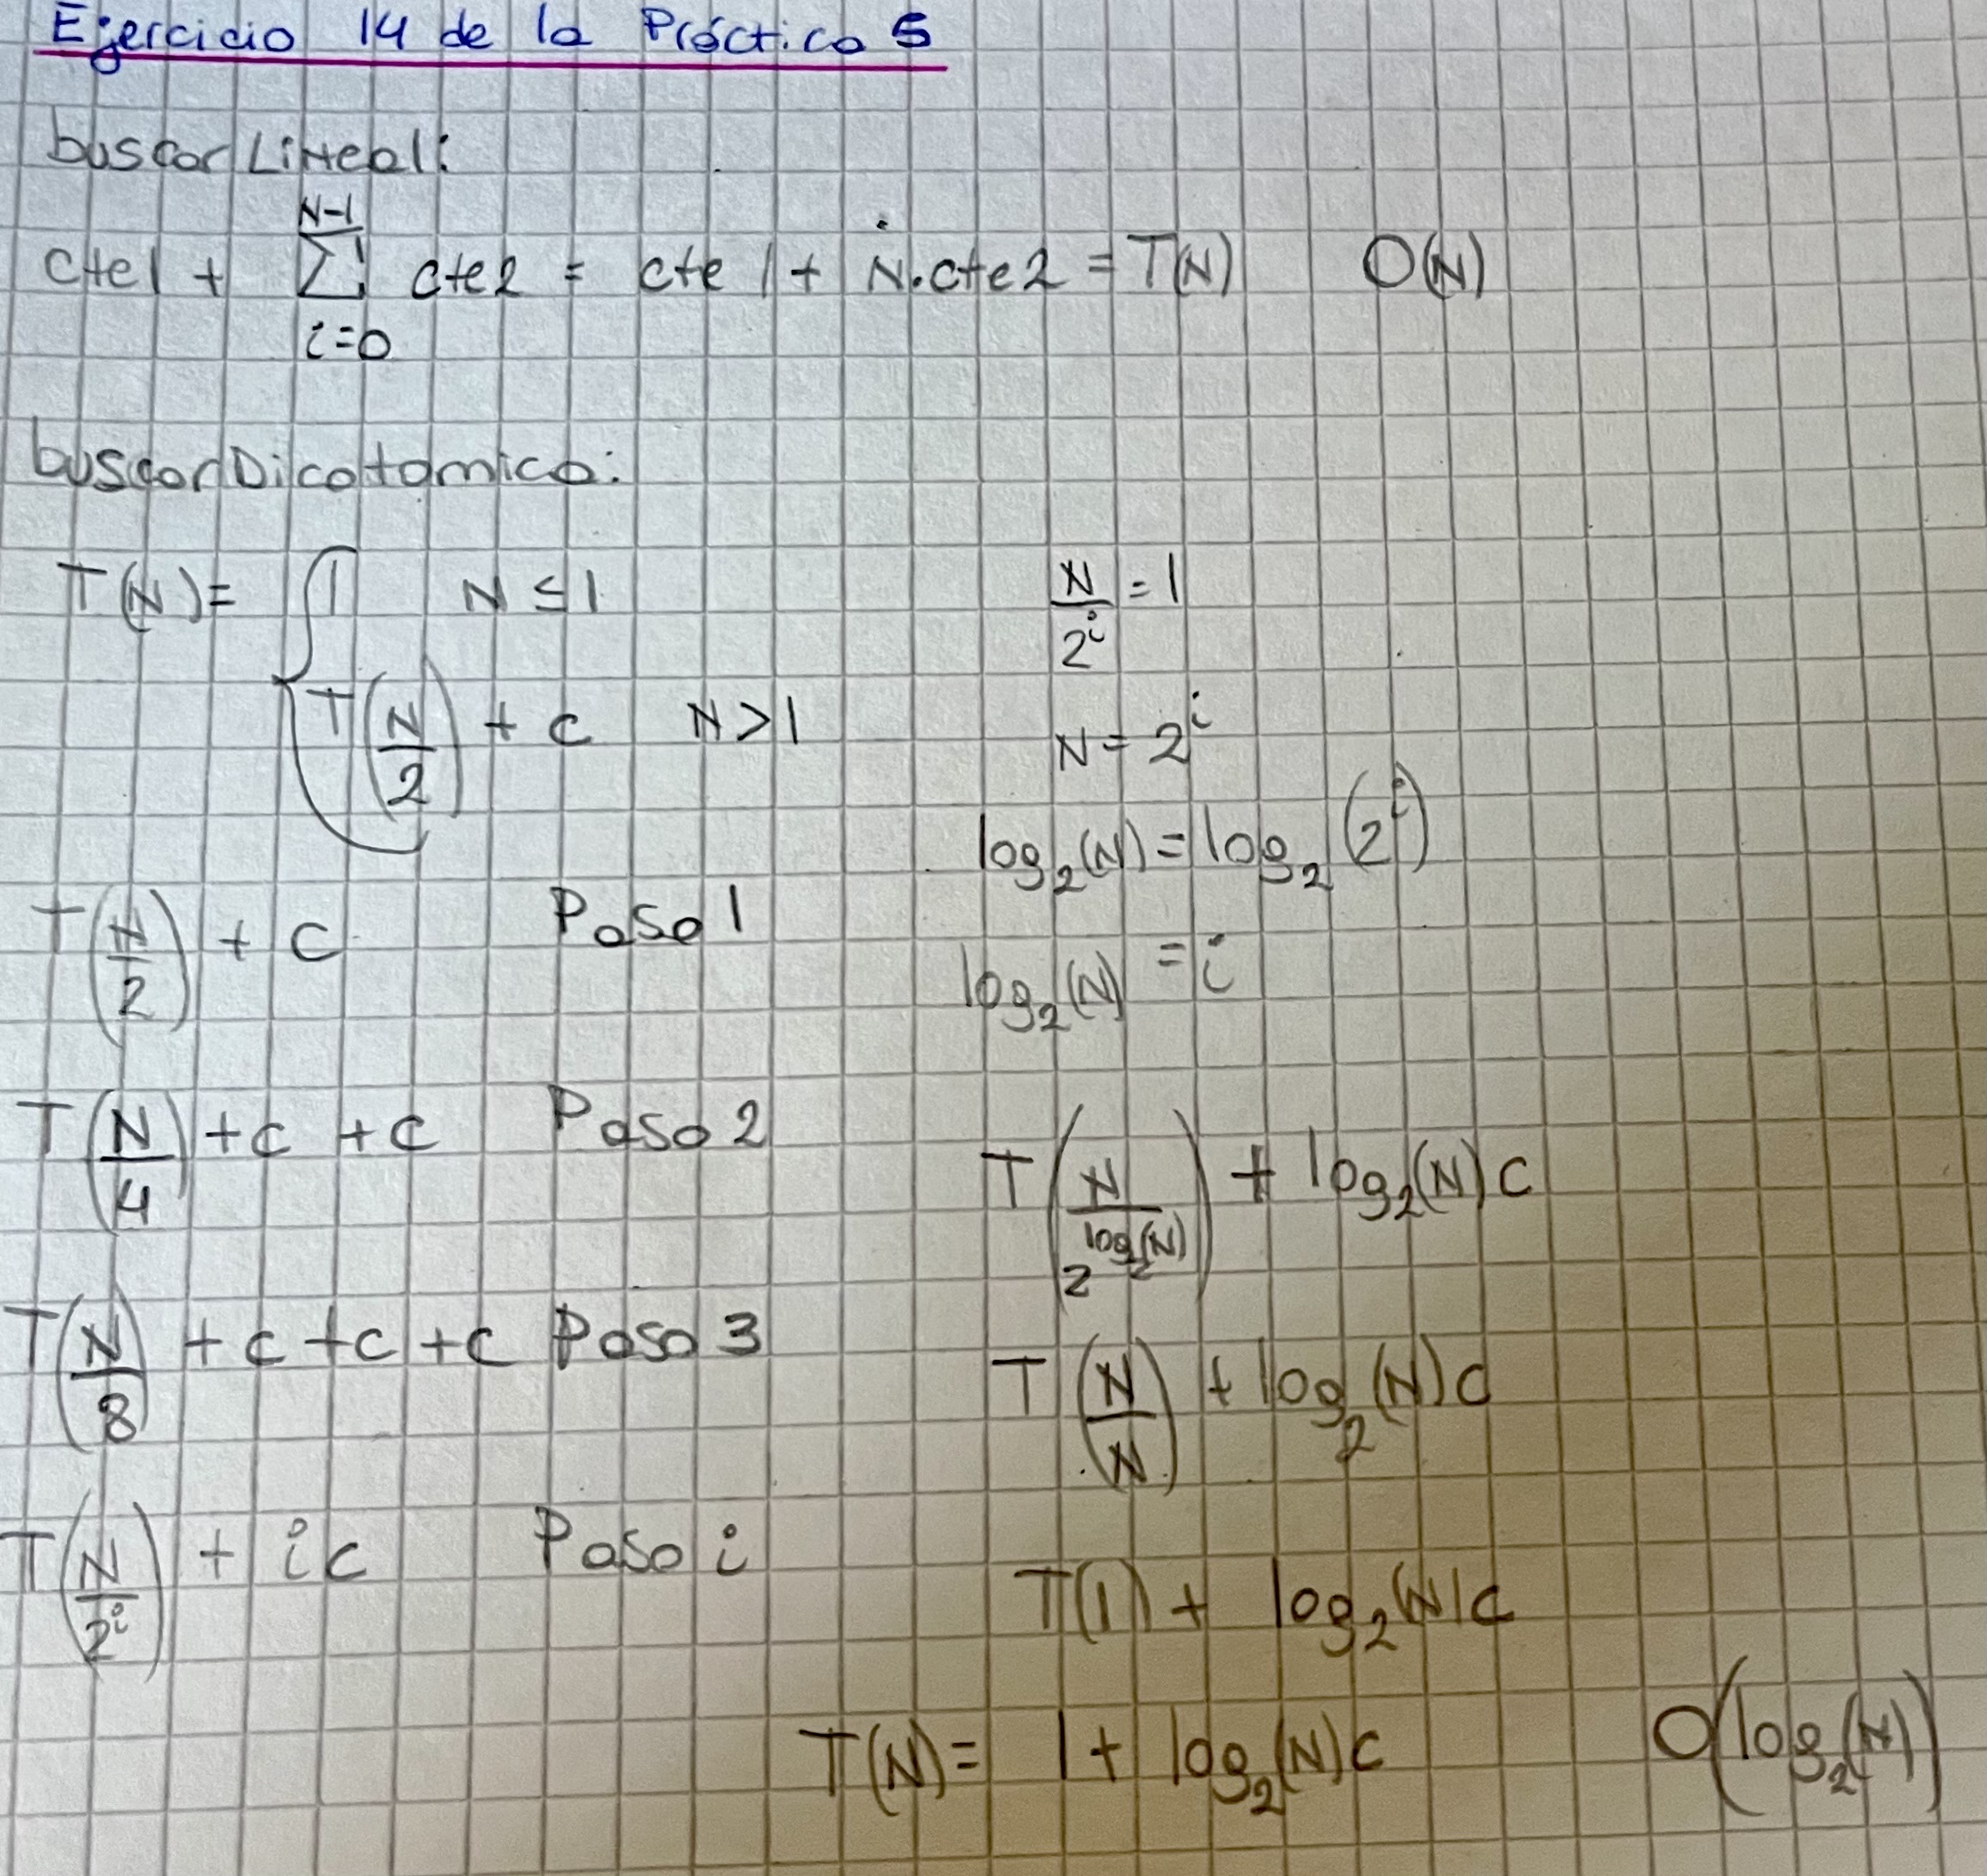 Ejercicio 14 de la Práctica 5
buscarLineal:
cte1 + \sum_{i=0}^{N-1} cte2 = cte1 + N.cte2 = T(N)    O(N)
buscarDicotomica:
T(N) = { 1    N ≤ 1
T(N/2) + c    N > 1
T(N/2) + c    Paso 1
T(N/4) + c + c    Paso 2
T(N/8) + c + c + c    Paso 3
T(N/2^i) + ic    Paso i
N/2^i = 1
N = 2^i
log_2(N) = log_2(2^i)
log_2(N) = i
T(N/2^{log_2(N)}) + log_2(N)c
T(N/N) + log_2(N)c
T(1) + log_2(N)c
T(N) = 1 + log_2(N)c    O(log_2(N))